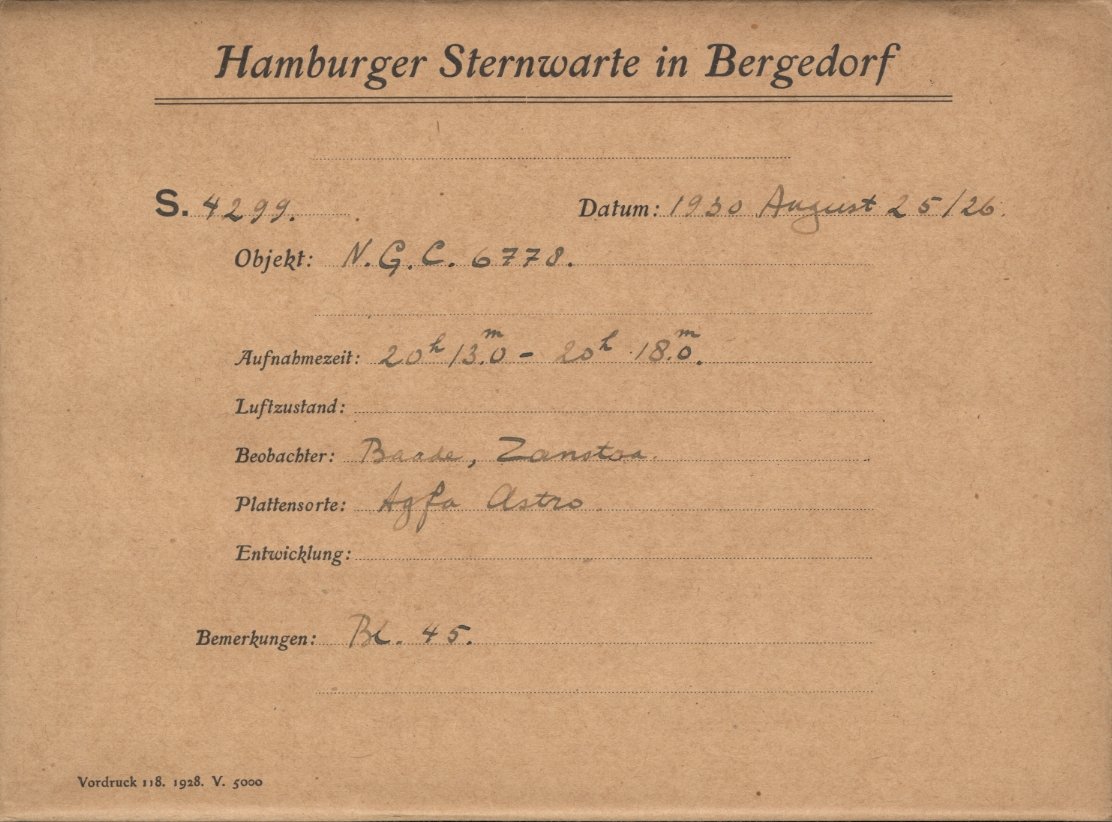 Hamburger Sternwarte in Bergedorf
S. 4299. Datum: 1930 August 25/26.
Objekt: N.G.C. 6778.
Aufnahmezeit: 20h 13.m0 - 20h 18.m0.
Luftzustand:
Beobachter: Baade, Zanstra.
Plattensorte: Agfa Astro
Entwicklung:
Bemerkungen: Bl. 45.
Vordruck 118. 1928. V. 5000